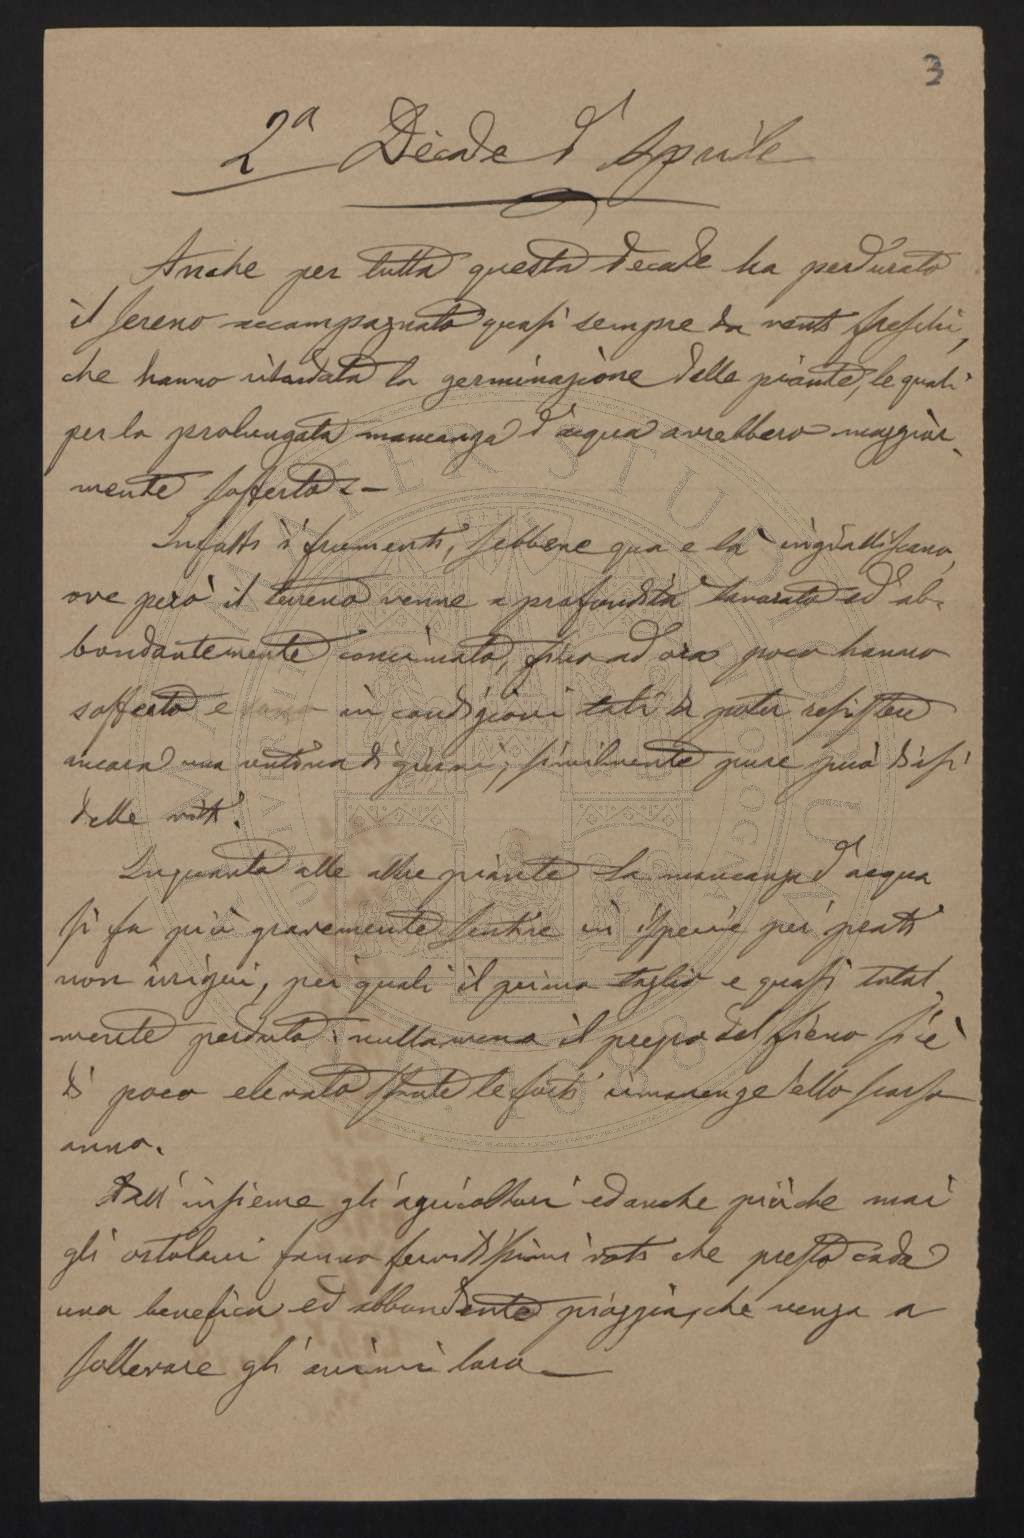 3
2ª Decade d'Aprile
Anche per tutta questa decade ha perdurato
il sereno accompagnato quasi sempre da venti freschi,
che hanno ritardata la germinazione delle piante, le quali
per la prolungata mancanza d'acqua avrebbero maggior-
mente sofferto. —
Infatti i frumenti, sebbene qua e là ingialliscano,
ove però il terreno venne a profondità lavorato ed ab-
bondantemente concimato, fino ad ora poco hanno
sofferto e sono in condizioni tali da poter resistere
ancora una ventina di giorni; similmente pure può dirsi
delle viti.
Inquanto alle altre piante la mancanza d'acqua
si fa più gravemente sentire in ispecie pei prati
non irrigui, pei quali il primo taglio e quasi total-
mente perduto: nullameno il prezzo del fieno si è
di poco elevato stante le forti rimanenze dello scorso
anno.
Nell'insieme gli agricoltori ed anche più che mai
gli ortolani fanno fervidissimi voti che presto cada
una benefica ed abbondante pioggia, che venga a
sollevare gli animi loro —